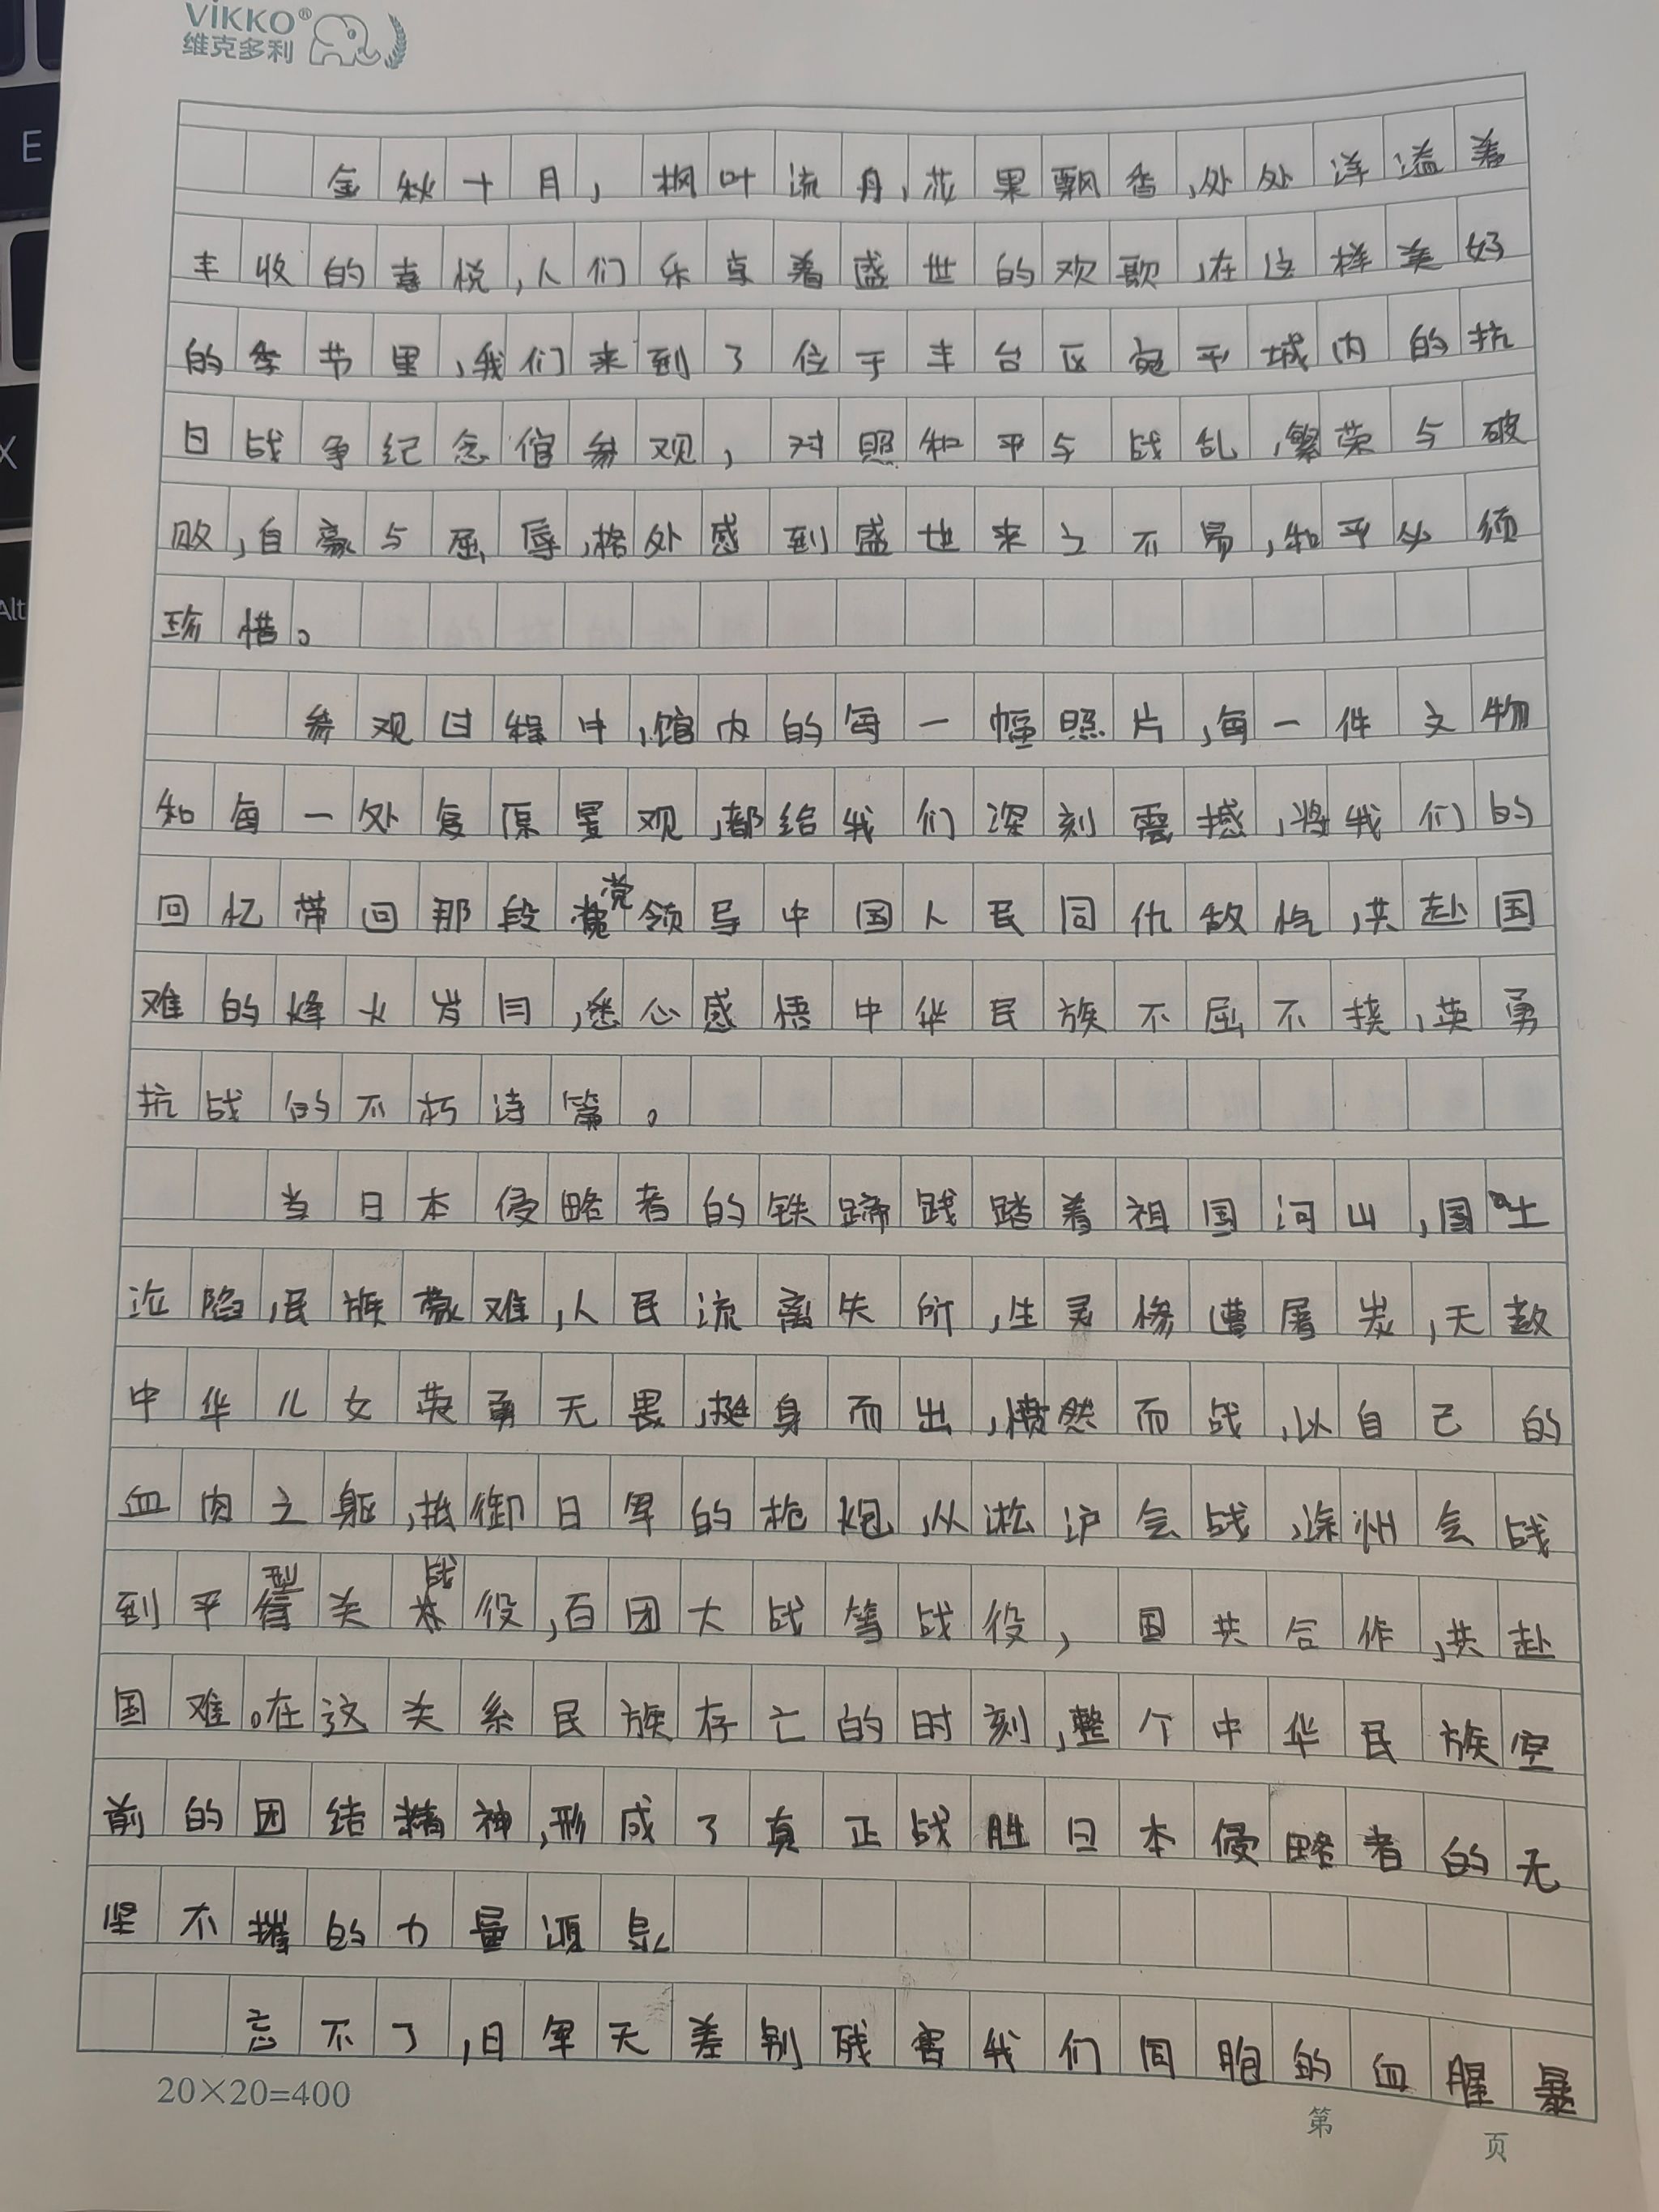 VIKKO®
维克多利
金秋十月，枫叶流丹，花果飘香，处处洋溢着
丰收的喜悦，人们乐享着盛世的欢歌，在这样美好
的季节里，我们来到了位于丰台区宛平城内的抗
日战争纪念馆参观，对照和平与战乱，繁荣与破
败，自豪与屈辱，格外感到盛世来之不易，和平必须
珍惜。
参观过程中，馆内的每一幅照片，每一件文物
和每一处复原景观，都给我们深刻震撼，将我们的
回忆带回那段党领导中国人民同仇敌忾，共赴国
难的烽火岁月，悉心感悟中华民族不屈不挠，英勇
抗战的不朽诗篇。
当日本侵略者的铁蹄践踏着祖国河山，国土
沦陷，民族蒙难，人民流离失所，生灵惨遭屠炭，无数
中华儿女英勇无畏，挺身而出，愤然而战，以自己的
血肉之躯，抵御日军的枪炮，从淞沪会战，徐州会战
到平型关战役，百团大战等战役，国共合作，共赴
国难。在这关系民族存亡的时刻，整个中华民族空
前的团结精神，形成了真正战胜日本侵略者的无
坚不摧的力量源泉
忘不了，日军无差别残害我们同胞的血腥暴
20×20=400
第 页
E
X
Alt